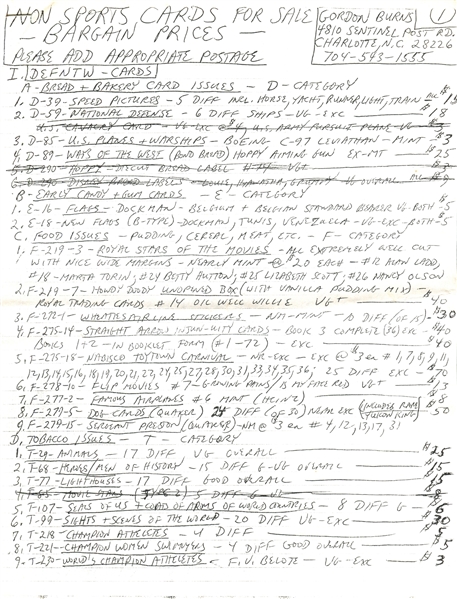 NON SPORTS CARDS FOR SALE
- BARGAIN PRICES -
PLEASE ADD APPROPRIATE POSTAGE
GORDON BURNS
4810 SENTINEL POST RD.
CHARLOTTE, N.C. 28226
704-543-1555
1
I. DEFNTW - CARDS
A - BREAD + BAKERY CARD ISSUES - D - CATEGORY
1. D-39 - SPEED PICTURES - 5 DIFF INCL. HORSE, YACHT, RUNNER, LIGHT, TRAIN ALL $15
2. D-59 - NATIONAL DEFENSE - 6 DIFF SHIPS - VG-EXC - $18
U.S. CAVALRY CARD - VG-EXC U.S. ARMY PURSUIT PLANE VG
3. D-85 - U.S. PLANES + WARSHIPS - BOEING C-97 LEVIATHAN - MINT - $3
4. D-89 - WAYS OF THE WEST (BOND BREAD) HOPPY AIMING GUN EX-MT - $25
5. D-290 - HOPPY - DIECUT BREAD LABEL
6. D-290 - DISNEY BREAD LABELS - LOUIS, HIAWATHA, GRUMPY VG OVERALL ALL
B - EARLY CANDY + GUM CARDS - E - CATEGORY
1. E-16 - FLAGS - DOCKMAN - BELGIUM + BELGIAN STANDARD BEARER VG - BOTH - $5
2. E-18 - NEW FLAGS (E TYPE) - DOCKMAN, TUNIS, VENEZUELA - VG-EXC - BOTH - $5
C. FOOD ISSUES - PUDDING, CEREAL, MEAT, ETC. - F - CATEGORY
1. F-219-3 - ROYAL STARS OF THE MOVIES - ALL EXTREMELY WELL CUT
WITH NICE WIDE MARGINS - NEARLY MINT @ $20 EACH - #12 ALAN LADD,
#18 - MARTA TOREN; #24 BETTY HUTTON; #25 LIZABETH SCOTT; #26 NANCY OLSON
2. F-219-7 - HOWDY DOODY UNOPND BOX (WITH VANILLA PUDDING MIX) -
ROYAL TRADING CARDS #14 OIL WELL WILLIE VG+ - $40
3. F-272-1 - WHEATIES AIRLINE STICKERS - NM-MINT - 10 DIFF (OF 15) - $30
4. F-275-14 - STRAIGHT ARROW INJUN-UITY CARDS - BOOK 3 COMPLETE (36) EXC - $40
BOOKS 1+2 - IN BOOKLET FORM (#1-72) - EXC - $40
5. F-275-18 - NABISCO TOYTOWN CARNIVAL - NR-EXC - EXC @ $3 EA # 1, 7, 8, 9, 11,
12, 13, 14, 15, 16, 18, 19, 20, 21, 22, 24, 25, 27, 28, 30, 31, 33, 34, 35, 36; 25 DIFF EXC - $70
6. F-278-10 - FLIP MOVIES #7 - VG+ - $13
7. F-277-2 - FAMOUS AIRPLANES #6 MINT (HEINZ) - $8
8. F-279-5 - DOG CARDS (QUAKER) 24 DIFF (OF 30) NEAR EXC (INCLUDES RARE YUKON KING) - $50
9. F-279-15 - SERGEANT PRESTON (QUAKER) - NM @ $3 EA # 4, 12, 13, 17, 31
D. TOBACCO ISSUES - T - CATEGORY
1. T-29 - ANIMALS - 17 DIFF, VG OVERALL - $25
2. T-68 - HEROES/MEN OF HISTORY - 15 DIFF G-VG OVERALL - $15
3. T-77 - LIGHTHOUSES - 17 DIFF GOOD OVERALL - $15
4. T-85 - MOVIE STARS (TYPE 2) 5 DIFF G-VG - $8
5. T-107 - SEALS OF US + COATS OF ARMS OF WORLD COUNTRIES - 8 DIFF G - $6
6. T-99 - SIGHTS + SCENES OF THE WORLD - 20 DIFF VG-EXC - $30
7. T-218 - CHAMPION ATHLETES - 4 DIFF - $5
8. T-221 - CHAMPION WOMEN SWIMMERS - 4 DIFF GOOD OVERALL - $5
9. T-230 - WORLD'S CHAMPION ATHLETES - F.V. BELOTE - VG-EXC - $3